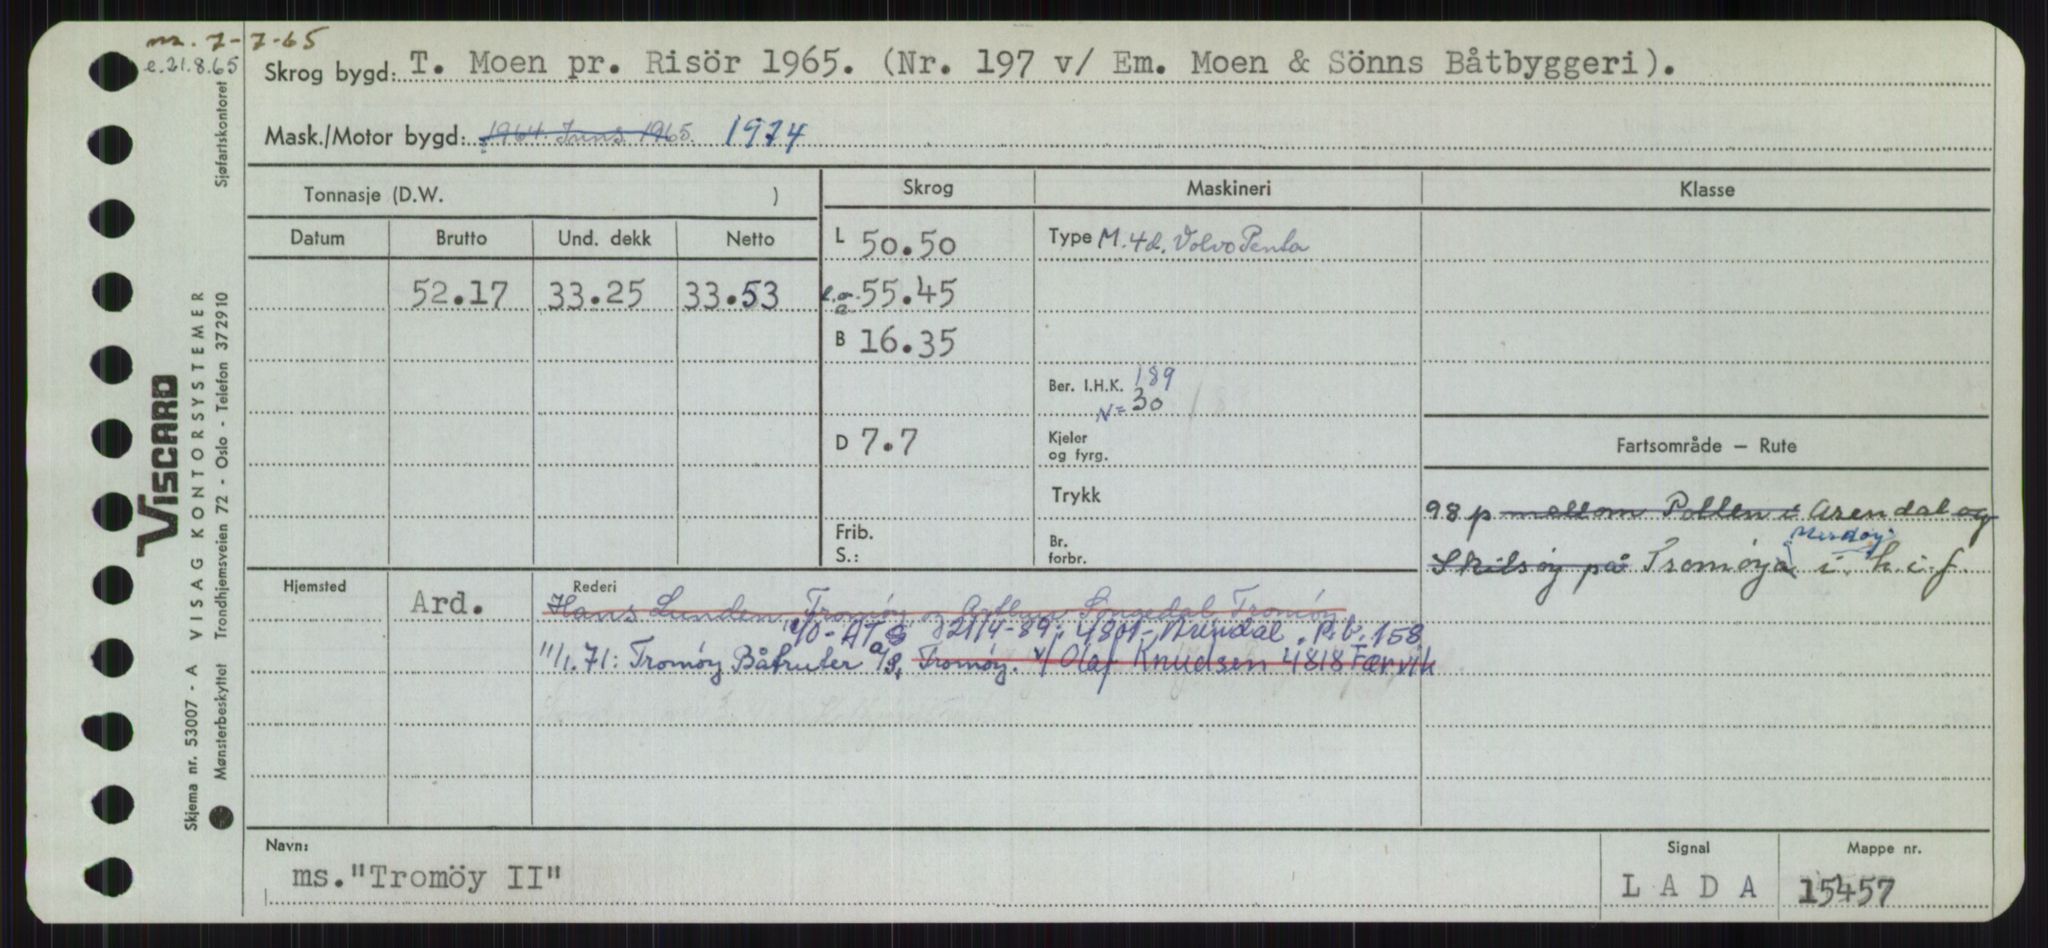 m. 7-7-65
e. 21.8.65
Skrog bygd: T. Moen pr. Risör 1965. (Nr. 197 v/ Em. Moen & Sönns Båtbyggeri).
Mask./Motor bygd: 1964. Inns. 1965. 1974
Tonnasje (D.W. )
Skrog Maskineri Klasse
Datum Brutto Und. dekk Netto
L 50.50 Type M. 4 d. Volvo Penta
52.17 33.25 33.53 l.o.a. 55.45
B 16.35
Ber. I.H.K. 189
N = 30
D 7.7 Kjeler og fyrg.
Fartsområde – Rute
Trykk
98 p mellom Pollen i Arendal og
Frib. Br.
S.: forbr.
Merdøy
Skilsøy på Tromøya i h.i.f.
Hjemsted Ard. Rederi
Hans Lunden, Tromøy og Arthur Songedal Tromøy
21/4-89: 4801- Arendal. P.b. 158
11/1.71: Tromøy Båtruter a/s, Tromøy. v/ Olaf Knudsen 4818 Færvik
Navn: Signal Mappe nr.
ms. "Tromöy II" L A D A 15457
Sjøfartskontoret
VISCARD
VISAG KONTORSYSTEMER
Trondhjemsveien 72 - Oslo - Telefon 372910
Skjema nr. 53007 - A
Mønsterbeskyttet